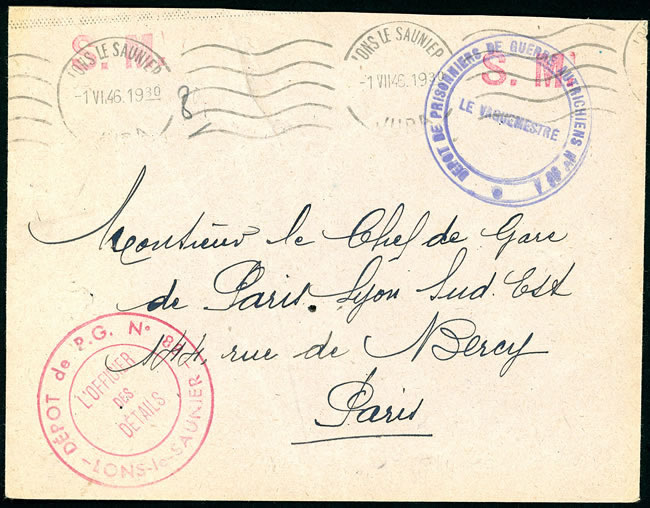 S. M.
LONS LE SAUNIER
-1 VII 46. 19 30
JURA
8
LONS LE SAUNIER
-1 VII 46. 19 30
JURA
S. M.
DEPOT DE PRISONNIERS DE GUERRE AUTRICHIENS N°
LE VAGUEMESTRE
Monsieur le Chef de Gare
de Paris. Lyon Sud. Est
144, rue de Bercy
Paris
DÉPOT de P.G. N°
L'OFFICIER
DES
DÉTAILS
-LONS-le-SAUNIER-